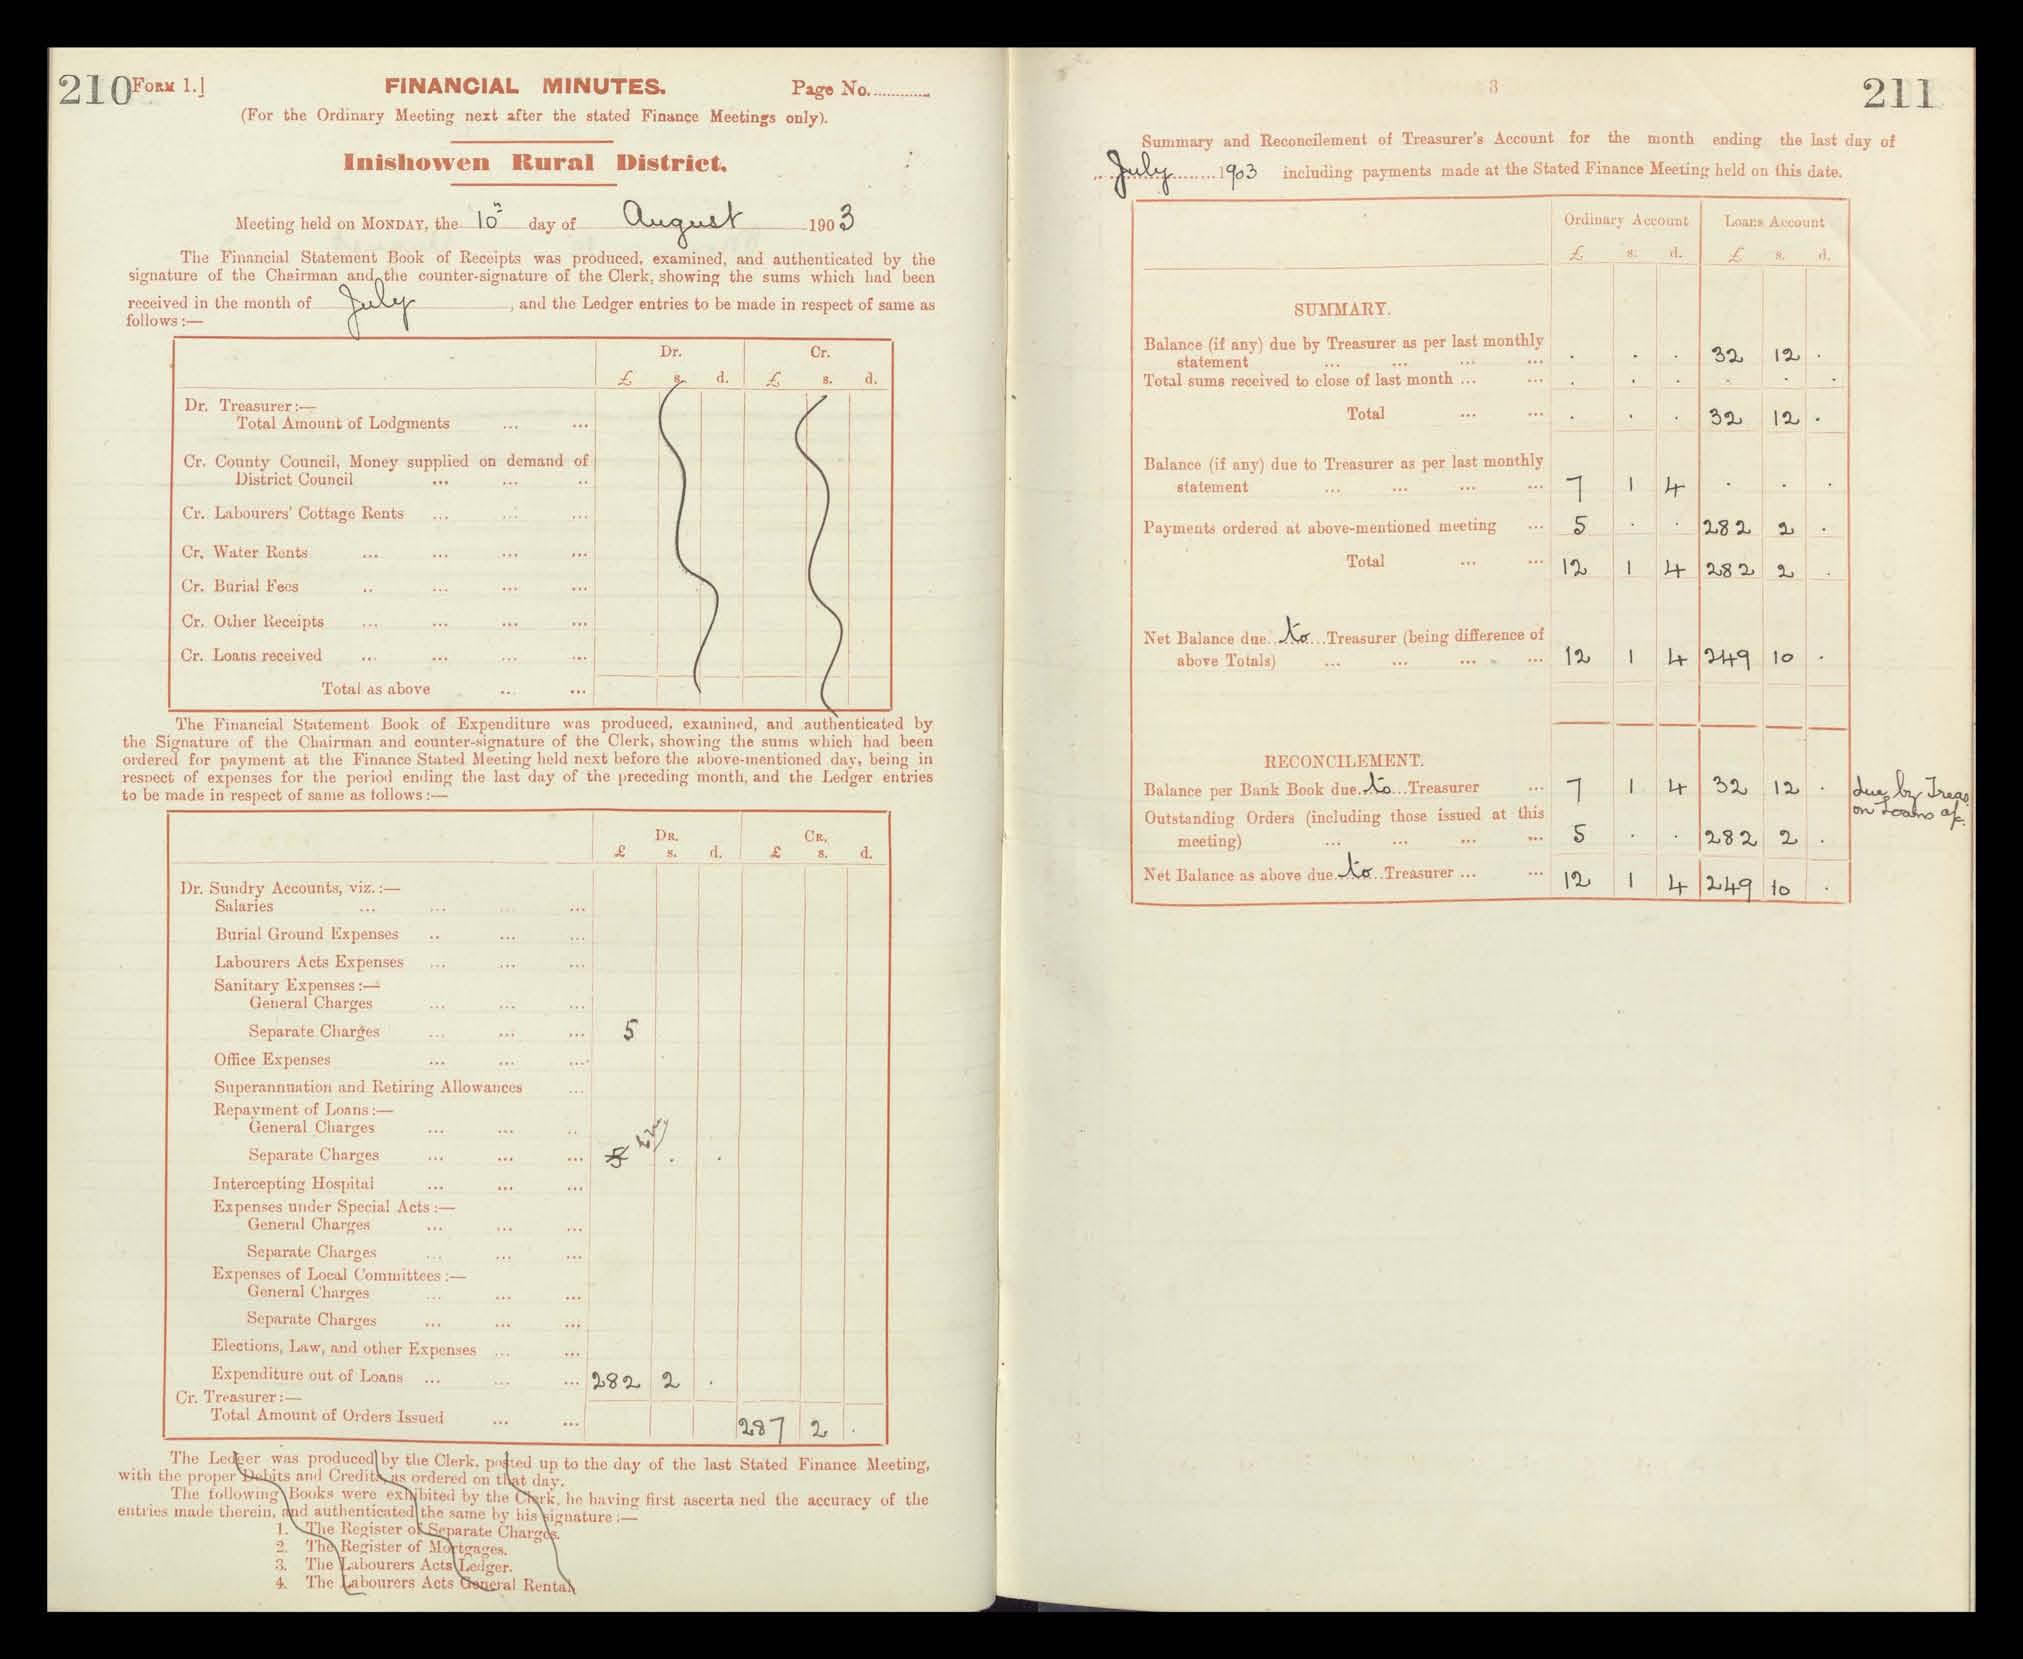 210 FORM 1.] FINANCIAL MINUTES. Page No.
(For the Ordinary Meeting next after the stated Finance Meetings only).
Inishowen Rural District.
Meeting held on MONDAY, the 10th day of August 1903
The Financial Statement Book of Receipts was produced, examined, and authenticated by the
signature of the Chairman and the counter-signature of the Clerk, showing the sums which had been
received in the month of July, and the Ledger entries to be made in respect of same as
follows:—
Dr. Cr.
£ s. d. £ s. d.
Dr. Treasurer:—
Total Amount of Lodgments ... ...
Cr. County Council, Money supplied on demand of
District Council ... ... ..
Cr. Labourers' Cottage Rents ... ... ...
Cr. Water Rents ... ... ... ...
Cr. Burial Fees .. ... ... ...
Cr. Other Receipts ... ... ... ...
Cr. Loans received ... ... ... ...
Total as above ... ...
The Financial Statement Book of Expenditure was produced, examined, and authenticated by
the Signature of the Chairman and counter-signature of the Clerk, showing the sums which had been
ordered for payment at the Finance Stated Meeting held next before the above-mentioned day, being in
respect of expenses for the period ending the last day of the preceding month, and the Ledger entries
to be made in respect of same as follows:—
DR. CR.
£ s. d. £ s. d.
Dr. Sundry Accounts, viz.:—
Salaries ... ... ... ...
Burial Ground Expenses .. ... ...
Labourers Acts Expenses ... ... ...
Sanitary Expenses:—
General Charges ... ... ...
Separate Charges ... ... ... 5
Office Expenses ... ... ...
Superannuation and Retiring Allowances ...
Repayment of Loans:—
General Charges ... ... ..
Separate Charges ... ... ... 5 . .
Intercepting Hospital ... ... ...
Expenses under Special Acts:—
General Charges ... ... ...
Separate Charges ... ... ...
Expenses of Local Committees:—
General Charges ... ... ...
Separate Charges ... ... ...
Elections, Law, and other Expenses ... ...
Expenditure out of Loans ... ... ... 282 2 .
Cr. Treasurer:—
Total Amount of Orders Issued ... ... 287 2 .
The Ledger was produced by the Clerk, posted up to the day of the last Stated Finance Meeting,
with the proper Debits and Credits as ordered on that day.
The following Books were exhibited by the Clerk, he having first ascerta ned the accuracy of the
entries made therein, and authenticated the same by his signature:—
1. The Register of Separate Charges.
2. The Register of Mortgages.
3. The Labourers Acts Ledger.
4. The Labourers Acts General Rental.
3 211
Summary and Reconcilement of Treasurer's Account for the month ending the last day of
July 1903 including payments made at the Stated Finance Meeting held on this date.
Ordinary Account Loans Account
£ s. d. £ s. d.
SUMMARY.
Balance (if any) due by Treasurer as per last monthly
statement ... ... ... ... . . . 32 12 .
Total sums received to close of last month ... ... . . . . . .
Total ... ... . . . 32 12 .
Balance (if any) due to Treasurer as per last monthly
statement ... ... ... ... 7 1 4 . . .
Payments ordered at above-mentioned meeting ... 5 . . 282 2 .
Total ... ... 12 1 4 282 2 .
Net Balance due to Treasurer (being difference of
above Totals) ... ... ... ... 12 1 4 249 10 .
RECONCILEMENT.
Balance per Bank Book due to Treasurer ... 7 1 4 32 12 . due by Treas.
on Loans a/c.
Outstanding Orders (including those issued at this
meeting) ... ... ... ... 5 . . 282 2 .
Net Balance as above due to Treasurer ... ... 12 1 4 249 10 .